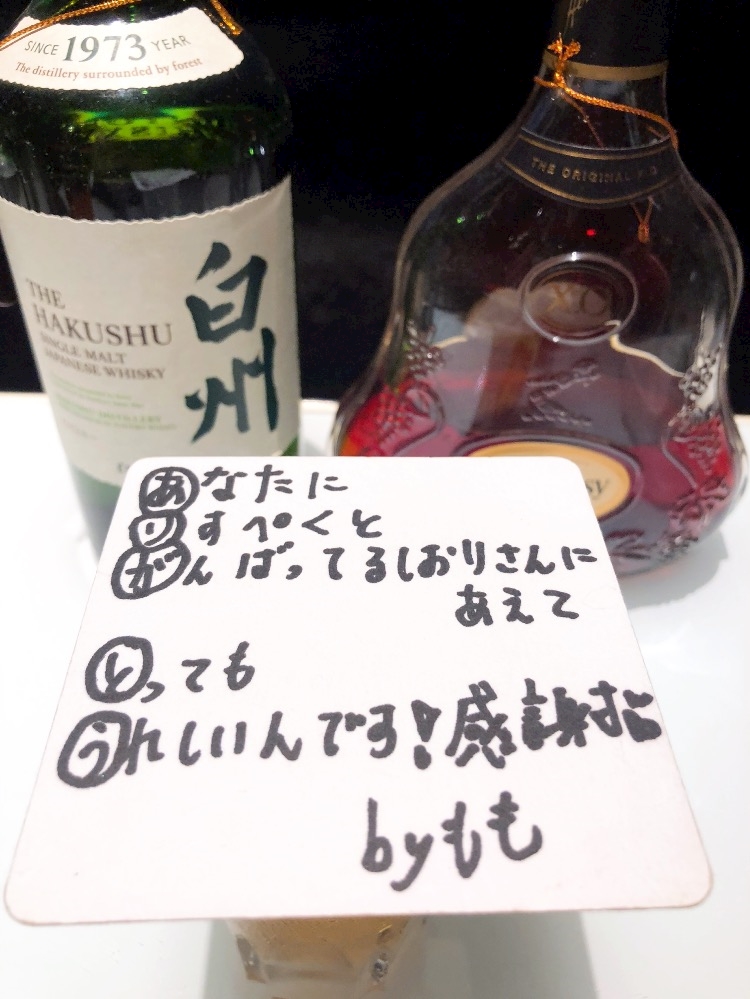 SINCE 1973 YEAR
The distillery surrounded by forest
THE
HAKUSHU
SINGLE MALT
JAPANESE WHISKY
白州
THE ORIGINAL X.O
XO
あなたに
りすぺくと
がんばってるしおりさんに
あえて
とっても
うれしいんです!感謝する
byもも